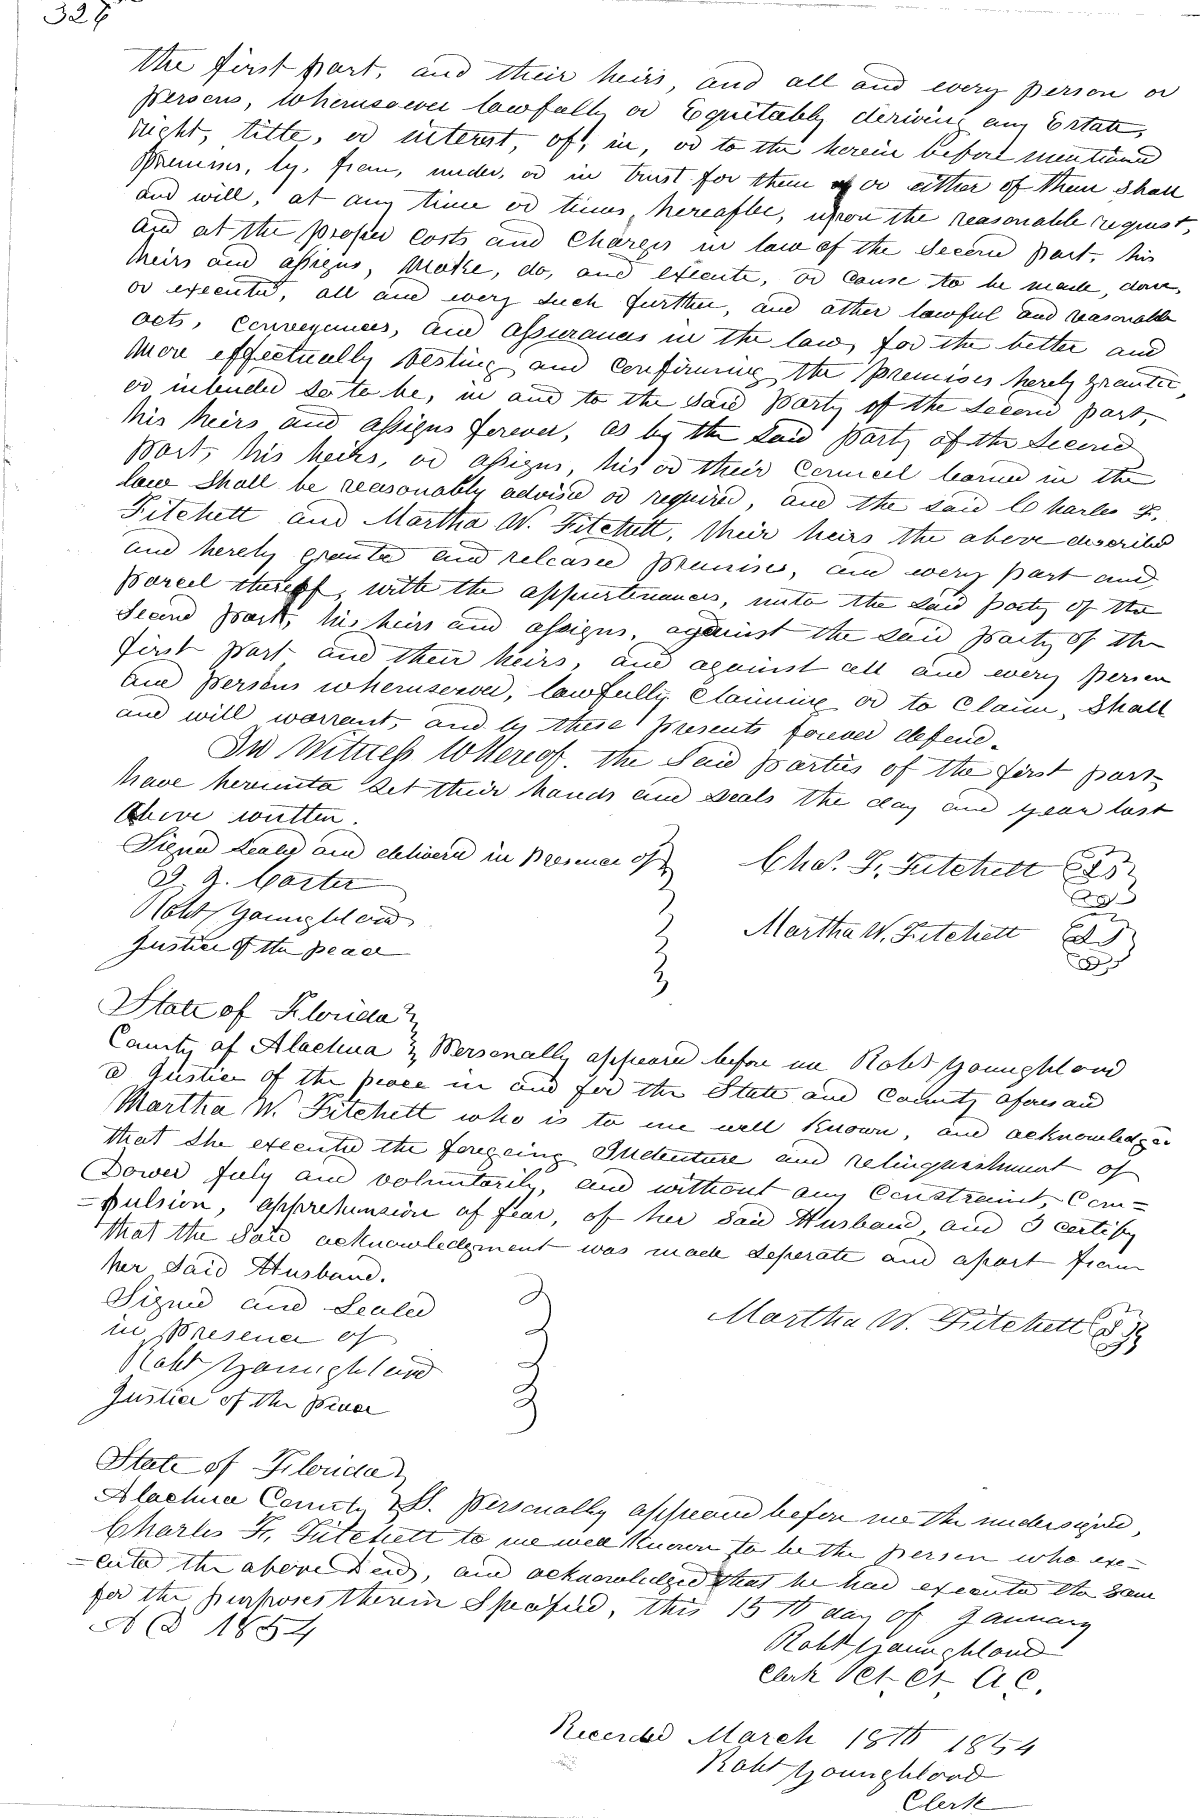 326
the first part, and their heirs, and all and every person or
persons, whomsoever lawfully or Equitably deriving any Estate,
right, title, or interest, of, in, or to the herein before mentioned
Premises, by, from, under, or in trust for them or either of them Shall
and will, at any time or times, hereafter, upon the reasonable request,
and at the proper costs and Charges in law of the Second part, his
heirs and assigns, Make, do, and execute, or cause to be made, done,
or executed, all and every such further, and other lawful and reasonable
acts, conveyances, and assurances in the law, for the better and
More effectually Vesting and Confirming the Premises hereby granted,
or intended so to be, in and to the said Party of the second part,
his heirs and assigns forever, as by the said party of the Second
Part, his heirs, or assigns, his or their Council learned in the
law shall be reasonably advised or required, and the said Charles F.
Fitchett and Martha W. Fitchett, their heirs the above described
and hereby granted and released Premises, and every part and
parcel thereof, with the appurtenances, unto the said party of the
Second part, his heirs and assigns, against the said party of the
first part and their heirs, and against all and every person
and persons whomsoever, lawfully claiming or to Claim, Shall
and will warrant, and by these Presents forever defend.
In Witness Whereof. the Said parties of the first part,
have hereunto set their hands and seals the day and year last
above written.
Signed Sealed and delivered in Presence of
Carter
Chas. F. Fitchett LS
Robt Youngblood
Martha W. Fitchett LS
Justice of the peace
State of Florida
County of Alachua Personally appeared before me Robt Youngblood
a Justice of the peace in and for the State and County aforesaid
Martha W. Fitchett who is to me well Known, and acknowledged
that she executed the foregoing Indenture and relinquishment of
Dower fuly and voluntarily, and without any Constraint, Com=
=pulsion, apprehension of fear, of her said Husband, and I certify
that the said acknowledgment was made seperate and apart from
her said Husband.
Signed and Sealed
in Presence of
Martha W. Fitchett LS
Robt Youngblood
Justice of the Peace
State of Florida
Alachua County SS. Personally appeared before me the undersigned,
Charles F. Fitchett to me well Known to be the person who exe=
=cuted the above Deed, and acknowledged that he had executed the same
for the purposes therein Specified, this 15th day of January
A D 1854
Robt Youngblood
Clerk Ct. Ct. A.C.
Recorded March 18th 1854
Robt Youngblood
Clerk